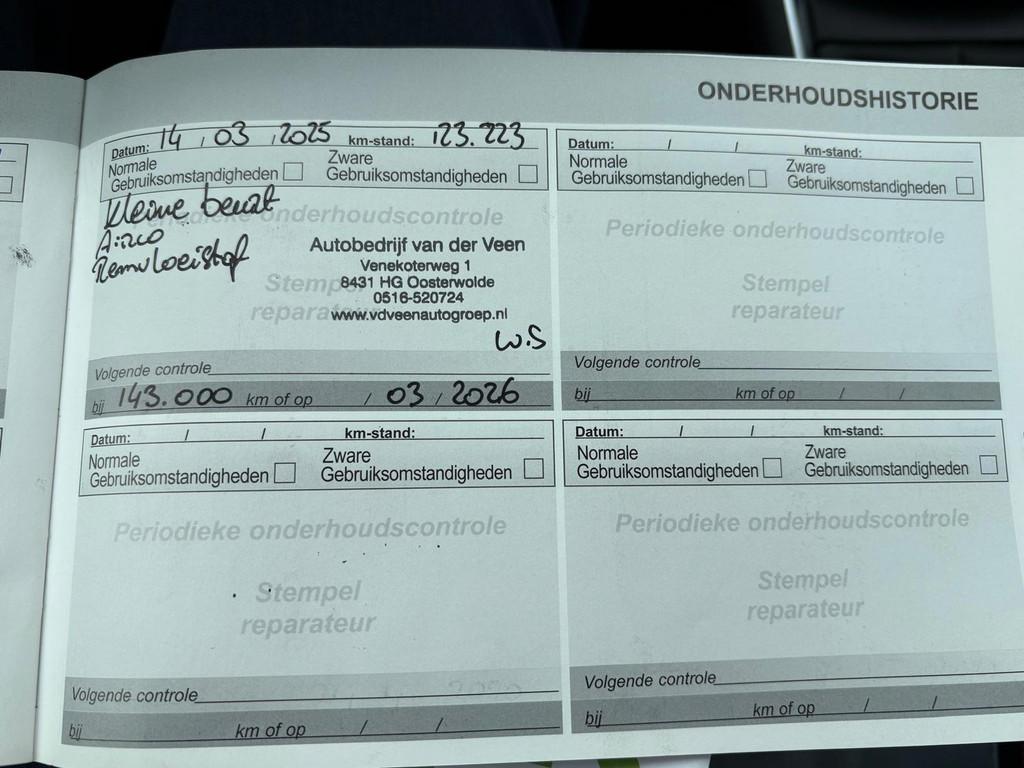 ONDERHOUDSHISTORIE
Datum: 14 / 03 / 2025 km-stand: 123.223
Normale Gebruiksomstandigheden Zware Gebruiksomstandigheden
Kleine beurt
Airco
Remvloeistof
Periodieke onderhoudscontrole
Stempel
reparateur
Autobedrijf van der Veen
Venekoterweg 1
8431 HG Oosterwolde
0516-520724
www.vdveenautogroep.nl
W.S
Volgende controle
bij 143.000 km of op / 03 / 2026
Datum: / / km-stand:
Normale Gebruiksomstandigheden Zware Gebruiksomstandigheden
Periodieke onderhoudscontrole
Stempel
reparateur
Volgende controle
bij km of op / /
Datum: / / km-stand:
Normale Gebruiksomstandigheden Zware Gebruiksomstandigheden
Periodieke onderhoudscontrole
Stempel
reparateur
Volgende controle
bij km of op / /
Datum: / / km-stand:
Normale Gebruiksomstandigheden Zware Gebruiksomstandigheden
Periodieke onderhoudscontrole
Stempel
reparateur
Volgende controle
bij km of op / /